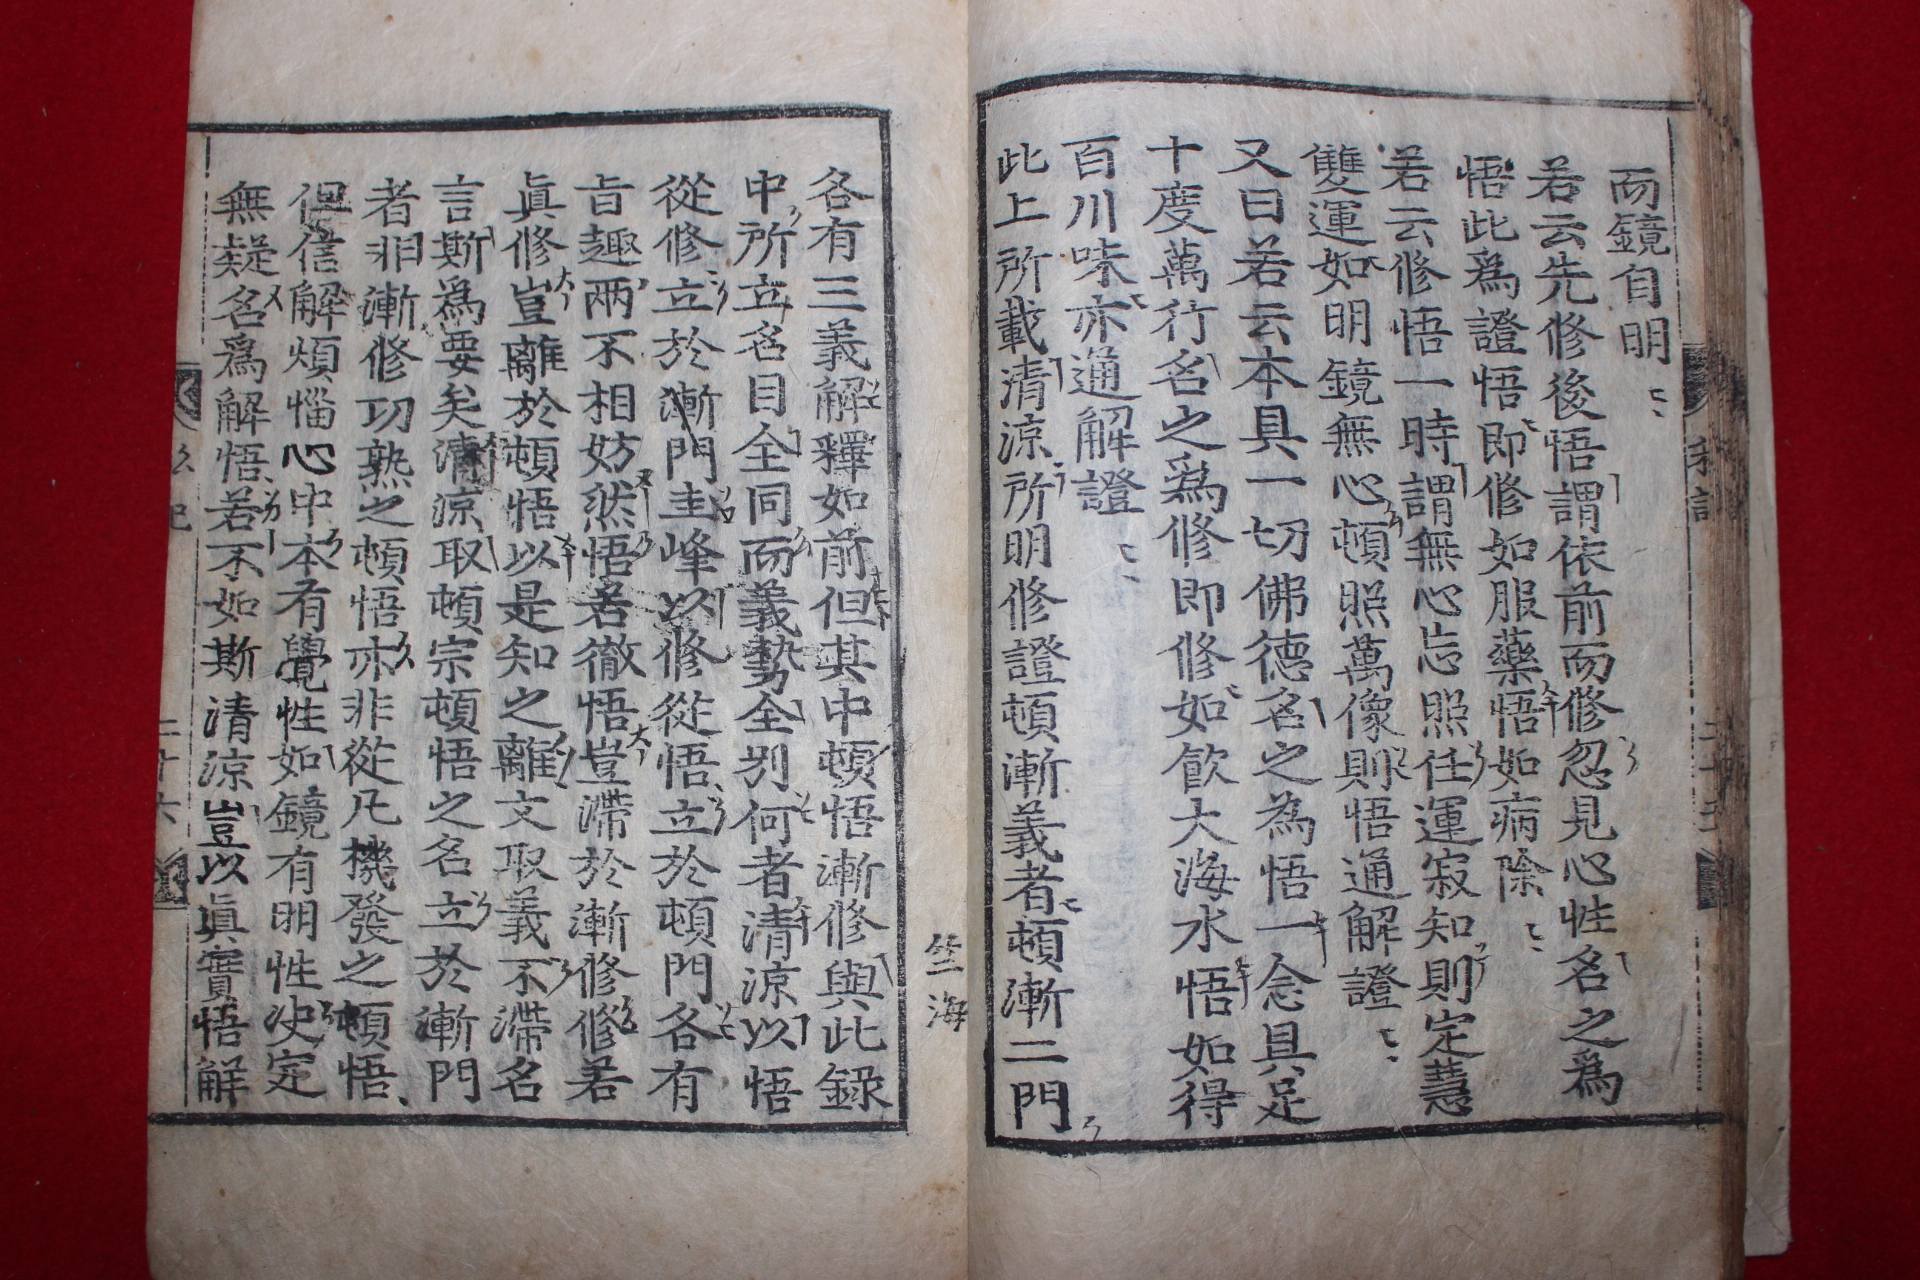 而鏡自明
若云先修後悟謂依前而修忽見心性名之爲
悟此爲證悟即修如服藥悟如病除
若云修悟一時謂無心忘照任運寂知則定慧
雙運如明鏡無心頓照萬像則悟通解證
又曰若云本具一切佛德名之為悟一念具足
十度萬行名之爲修即修如飮大海水悟如得
百川味亦通解證
此上所載淸凉所明修證頓漸義者頓漸二門
竺海
各有三義解釋如前但其中頓悟漸修與此録
中所立名目全同而義勢全別何者清凉以悟
從修立於漸門圭峰以修從悟立於頓門各有
旨趣兩不相妨然悟若徹悟豈滯於漸修修若
眞修豈離於頓悟以是知之離文取義不滯名
言斯爲要矣清凉取頓宗頓悟之名立於漸門
者非漸修功熟之頓悟亦非從凡機發之頓悟
但信解煩惱心中本有覺性如鏡有明性决定
無疑名爲解悟若不如斯清凉豈以眞實悟解
私記
二十六